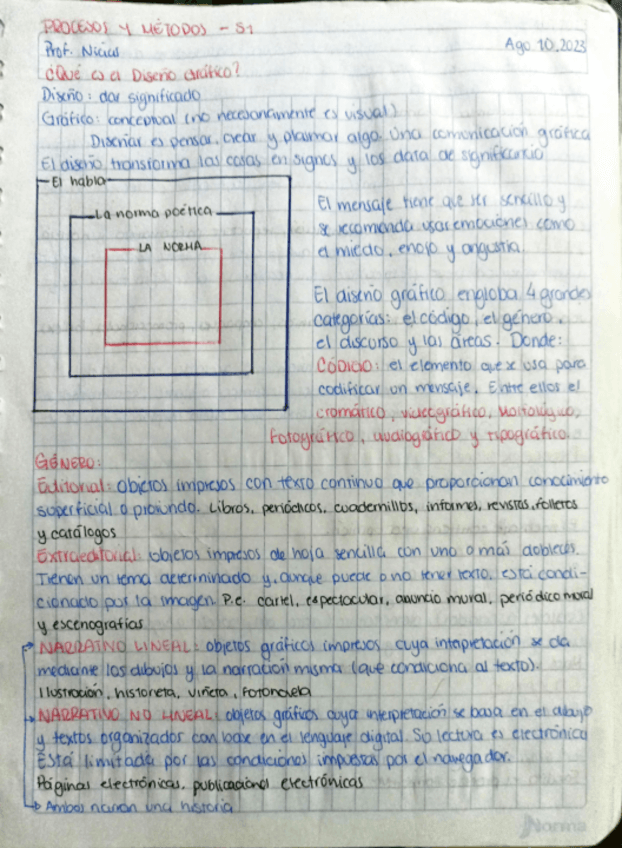 PROCESOS Y MÉTODOS - S1
Prof. Nicias
Ago. 10, 2023
¿Qué es el Diseño Gráfico?
Diseño: dar significado
Gráfico: conceptual (no necesariamente es visual)
Diseñar es pensar, crear y plasmar algo. Una comunicación gráfica
El diseño transforma las cosas en signos y los dota de significancia
El habla
La norma poética
LA NORMA
El mensaje tiene que ser sencillo y
se recomienda usar emociones como
el miedo, enojo y angustia.
El diseño gráfico engloba 4 grandes
categorías: el código, el género,
el discurso y las áreas. Donde:
CÓDIGO: el elemento que se usa para
codificar un mensaje. Entre ellos el
cromático, videográfico,
fotográfico, audiográfico y tipográfico.
GÉNERO:
Editorial: objetos impresos con texto continuo que proporcionan conocimiento
superficial o profundo. Libros, periódicos, cuadernillos, informes, revistas, folletos
y catálogos
Extraeditorial: objetos impresos de hoja sencilla con uno o más dobleces.
Tienen un tema determinado y, aunque puede o no tener texto, está condi-
cionado por la imagen. P.e. cartel, espectacular, anuncio mural, periódico mural
y escenografías
NARRATIVO LINEAL: objetos gráficos impresos cuya intepretación se da
mediante los dibujos y la narración misma (que condiciona al texto).
Ilustración, historieta, viñeta, fotonovela
NARRATIVO NO LINEAL: objetos gráficos cuya interpretación se basa en el dibujo
y textos organizados con base en el lenguaje digital. Su lectura es electrónica
Está limitada por las condiciones impuestas por el navegador.
Páginas electrónicas, publicaciones electrónicas
Ambos narran una historia
Norma